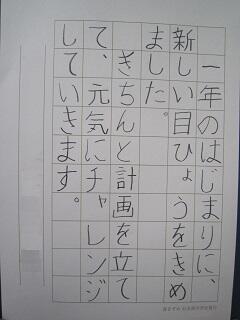 一年のはじまりに、
新しい目ひょうをきめ
ました。
きちんと計画を立て
て、元気にチャレンジ
していきます。